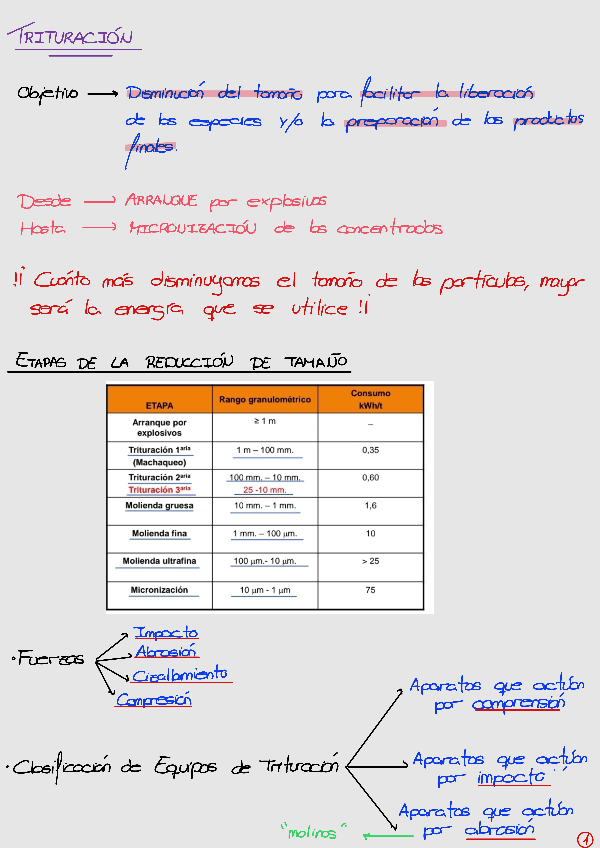 TRITURACIÓN
Objetivo → Disminución del tamaño para facilitar la liberación
de las especies y/o la preparación de los productos
finales.
Desde → ARRANQUE por explosivos
Hasta → MICRONIZACIÓN de los concentrados
!¡ Cuánto más disminuyamos el tamaño de las partículas, mayor
será la energía que se utilice !¡
ETAPAS DE LA REDUCCIÓN DE TAMAÑO
ETAPA Rango granulométrico Consumo kWh/t
Arranque por explosivos ≥ 1 m –
Trituración 1aria (Machaqueo) 1 m – 100 mm. 0,35
Trituración 2aria 100 mm. – 10 mm. 0,60
Trituración 3aria 25 -10 mm.
Molienda gruesa 10 mm. – 1 mm. 1,6
Molienda fina 1 mm. – 100 µm. 10
Molienda ultrafina 100 µm.- 10 µm. > 25
Micronización 10 µm - 1 µm 75
· Fuerzas
Impacto
Abrasión
Cizallamiento
Compresión
· Clasificación de Equipos de Trituración
Aparatos que actúan
por comprensión
Aparatos que actúan
por impacto
Aparatos que actúan
por abrasión
"molinos"
1